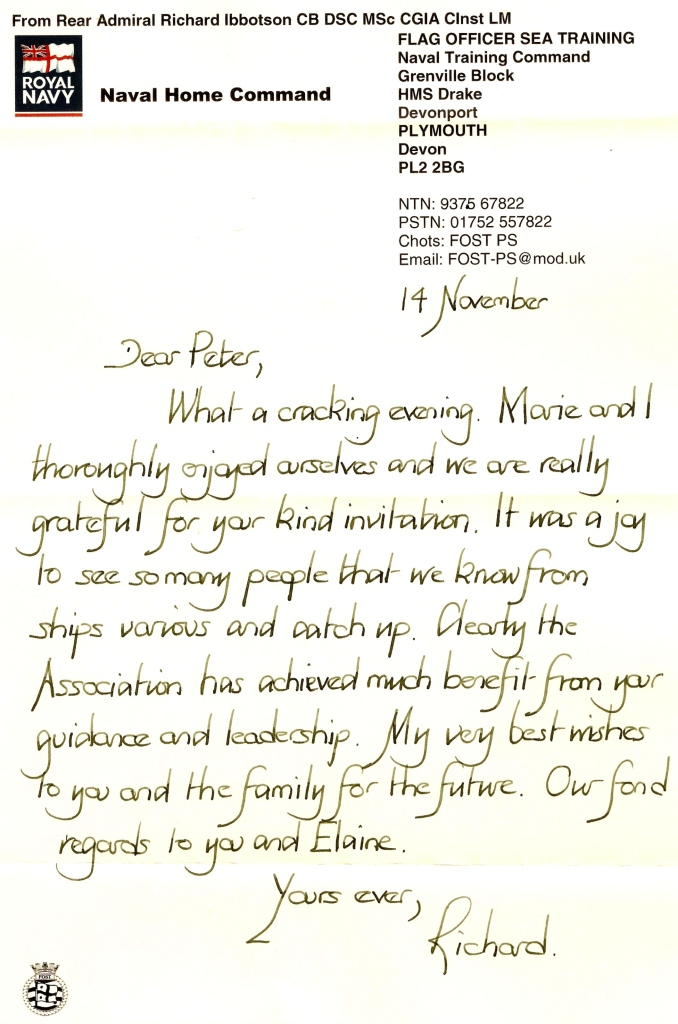 From Rear Admiral Richard Ibbotson CB DSC MSc CGIA CInst LM
ROYAL
NAVY
Naval Home Command
FLAG OFFICER SEA TRAINING
Naval Training Command
Grenville Block
HMS Drake
Devonport
PLYMOUTH
Devon
PL2 2BG
NTN: 9375 67822
PSTN: 01752 557822
Chots: FOST PS
Email: FOST-PS@mod.uk
14 November
Dear Peter,
What a cracking evening. Marie and I
thoroughly enjoyed ourselves and we are really
grateful for your kind invitation. It was a joy
to see so many people that we know from
ships various and catch up. Clearly the
Association has achieved much benefit from your
guidance and leadership. My very best wishes
to you and the family for the future. Our fond
regards to you and Elaine.
Yours ever,
Richard.
FOST